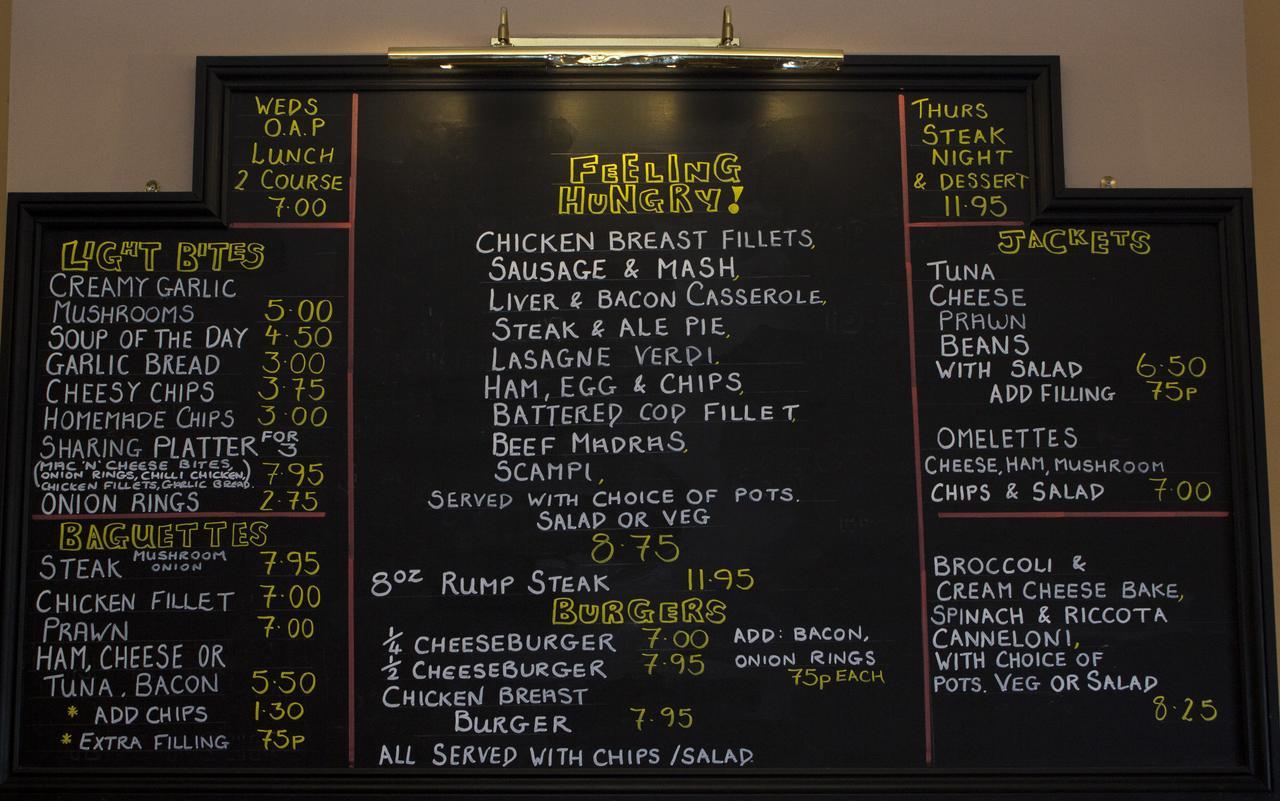 WEDS
O.A.P
LUNCH
2 COURSE
7.00
LIGHT BITES
CREAMY GARLIC
MUSHROOMS 5.00
SOUP OF THE DAY 4.50
GARLIC BREAD 3.00
CHEESY CHIPS 3.75
HOMEMADE CHIPS 3.00
SHARING PLATTER FOR 3
(MAC 'N' CHEESE BITES,
ONION RINGS, CHILLI CHICKEN,) 7.95
CHICKEN FILLETS, GARLIC BREAD.
ONION RINGS 2.75
BAGUETTES
STEAK MUSHROOM ONION 7.95
CHICKEN FILLET 7.00
PRAWN 7.00
HAM, CHEESE OR
TUNA. BACON 5.50
* ADD CHIPS 1.30
* EXTRA FILLING 75p
FEELING
HUNGRY!
CHICKEN BREAST FILLETS,
SAUSAGE & MASH,
LIVER & BACON CASSEROLE,
STEAK & ALE PIE,
LASAGNE VERDI,
HAM, EGG & CHIPS,
BATTERED COD FILLET,
BEEF MADRAS,
SCAMPI,
SERVED WITH CHOICE OF POTS.
SALAD OR VEG
8.75
8oz RUMP STEAK 11.95
BURGERS
1/4 CHEESEBURGER 7.00
1/2 CHEESEBURGER 7.95
ADD: BACON,
ONION RINGS
75p EACH
CHICKEN BREAST
BURGER 7.95
ALL SERVED WITH CHIPS /SALAD.
THURS
STEAK
NIGHT
& DESSERT
11.95
JACKETS
TUNA
CHEESE
PRAWN
BEANS
WITH SALAD 6.50
ADD FILLING 75p
OMELETTES
CHEESE, HAM, MUSHROOM
CHIPS & SALAD 7.00
BROCCOLI &
CREAM CHEESE BAKE,
SPINACH & RICCOTA
CANNELONI,
WITH CHOICE OF
POTS. VEG OR SALAD
8.25